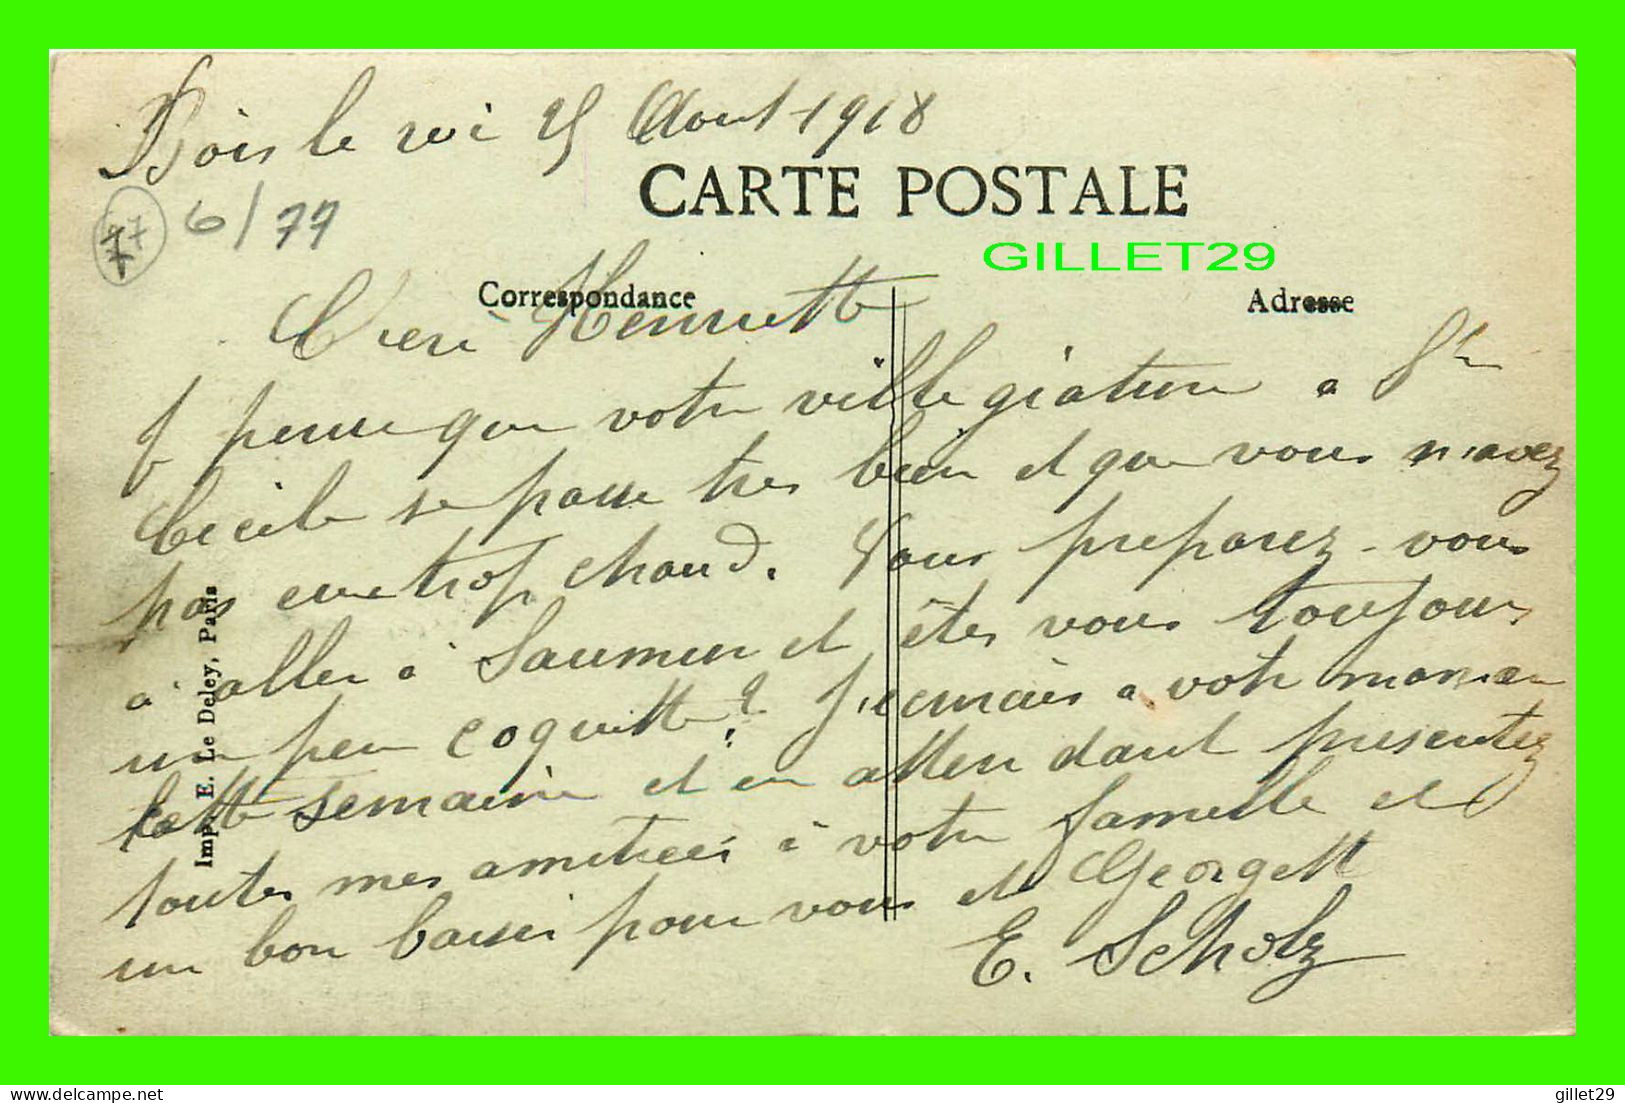 Bois le roi 25 Aout 1918
CARTE POSTALE
77 6/77
GILLET29
Correspondance
Adresse
Chere Henriette
J pense que votre villegiature a Ste
Cecile se passe tres bien et que vous n'avez
pas eue trop chaud. Vous preparez-vous
à aller à Saumur et êtes vous toujours
un peu coquette? J'ecrirais a votre maman
cette semaine et en attendant presentez
toutes mes amitiées à votre famille et
un bon baiser pour vous et Georgette
E. Scholz
Imp. E. Le Deley, Paris
delcampe.net
gillet29